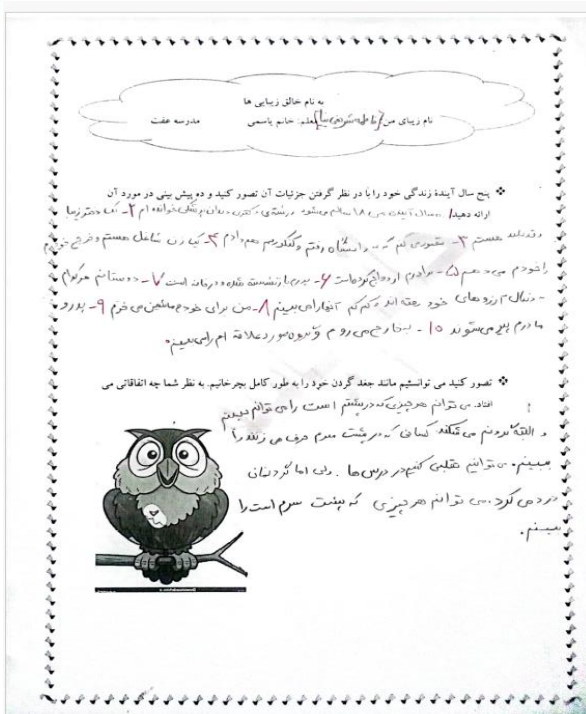 به نام خالق زیبایی ها
نام زیبای من: معلم: خانم یاسمی مدرسه عفت
پنج سال آیندهٔ زندگی خود را با در نظر گرفتن جزئیات آن تصور کنید و ده پیش بینی در مورد آن
ارائه دهید. ۱ـ سال آینده من ۱۸ سالم می‌شود خوانده ام ۲ـ یک دختر زیبا
قد بلند هستم ۳ـ تصور می کنم که به دانشگاه رفتم و کنکورم هم دادم ۴ـ یک زن شاغل هستم و خرج خودم
را خودم می دهم ۵ـ برادرم ازدواج کرده است ۶ـ پدرم بازنشسته شده و در خانه است ۷ـ دوستانم هرکدام
به دنبال آرزوهای خود رفته اند و کم کم آنها را می بینم ۸ـ من برای خودم ماشین می خرم ۹ـ پدر و
مادرم پیر می شوند ۱۰ـ به خارج می روم و مورد علاقه ام را می بینم.
تصور کنید می توانستیم مانند جغد گردن خود را به طور کامل بچرخانیم. به نظر شما چه اتفاقاتی می
افتاد. می توانم هر چیزی که در پشتم است را می توانم ببینم
و البته گردنم می شکند کسانی که در پشت سرم حرف می زنند را
ببینم. می توانیم تقلب کنیم در درس ها. ولی اما گردنمان
درد می گرد. می توانم هر چیزی که پشت سرم است را
ببینم.